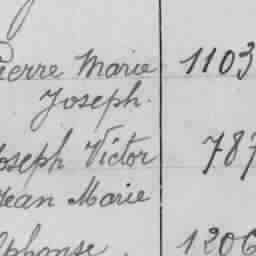 Pierre Marie 1103
Joseph.
Joseph Victor 787
Jean Marie
Alphonse. 1206